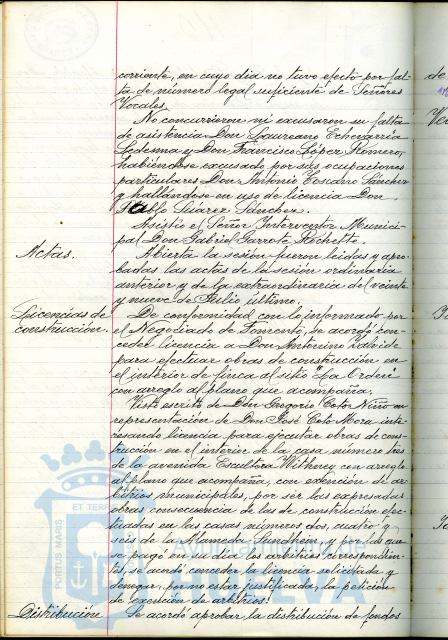 corriente, en cuyo dia no tuvo efecto por fal-
ta de número legal suficiente de Señores
Vocales.
No concurrieron ni excusaron su falta
de asistencia Don Laureano Echevarría
Ledesma y Don Francisco López Romero,
habiéndose excusado por sus ocupaciones
particulares Don Antonio Toscano Sánchez
y hallándose en uso de licencia Don
Pablo Suárez Sánchez.
Asistió el Señor Interventor Munici-
pal Don Gabriel Garrote Rochette.
Actas.
Abierta la sesión fueron leidas y apro-
badas las actas de la sesión ordinaria
anterior y de la extraordinaria del veinte
y nueve de Julio último.
Licencias de
construcción.
De conformidad con lo informado por
el Negociado de Fomento, se acordó con-
ceder licencia a Don Antonino
para efectuar obras de construcción en
el interior de finca al sitio "La Orden"
con arreglo al plano que acompaña.
Visto escrito de Don Gregorio Coto Niño en
representación de Don José Coto Mora inte-
resando licencia para ejecutar obras de cons-
trucción en el interior de la casa número tres
de la avenida Escultora Withney con arreglo
al plano que acompaña, con exención de ar-
bitrios municipales, por ser las expresadas
obras consecuencia de las de construcción efec-
tuadas en las casas números dos, cuatro y
seis de la Alameda Sundheim, y por las que
se pagó en su dia los arbitrios correspondien-
tes, se acordó conceder la licencia solicitada y
denegar, por no estar justificada, la petición
de exención de arbitrios.
Distribución
Se acordó aprobar la distribución de fondos
PORTUS MARIS
ET TERR